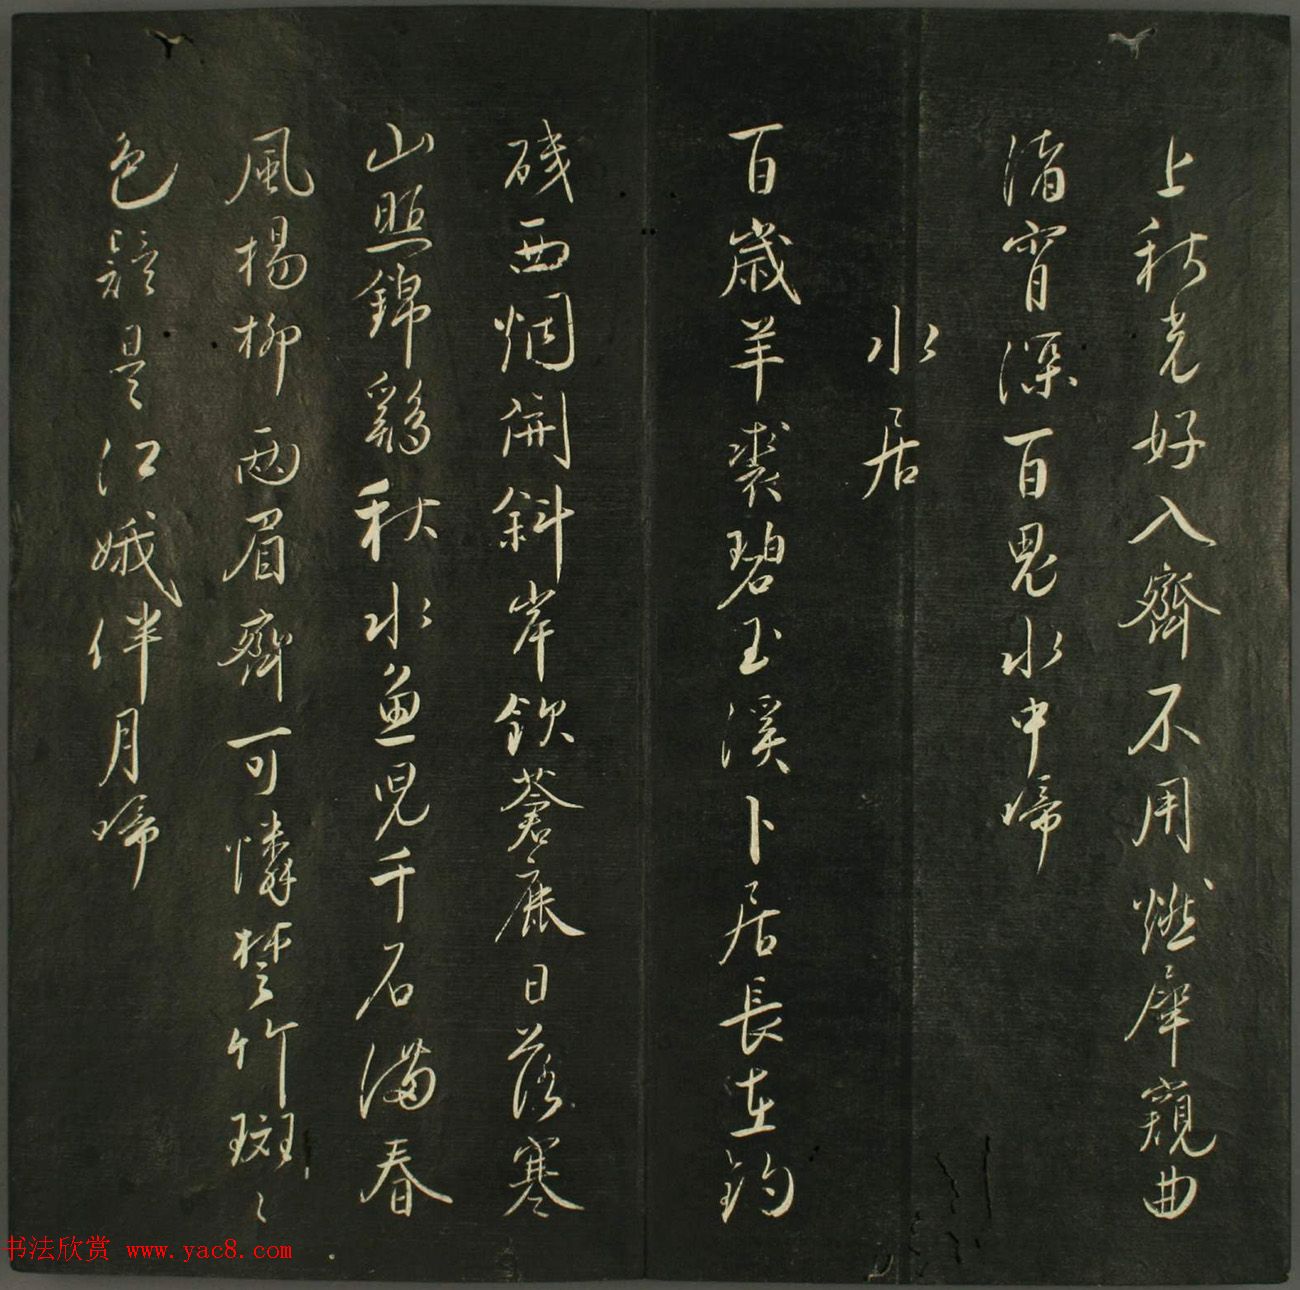 上秋光好入齊不用燃犀窺曲
渚宵深百鬼水中啼
水居
百歲羊裘碧玉溪卜居長在釣
磯西烟開斜岸飲蒼鹿日落寒
山照錦鷄秋水魚兒千石滿春
風楊柳兩眉齊可憐楚竹斑〻
色疑是江娥伴月啼
书法欣赏 www.yac8.com